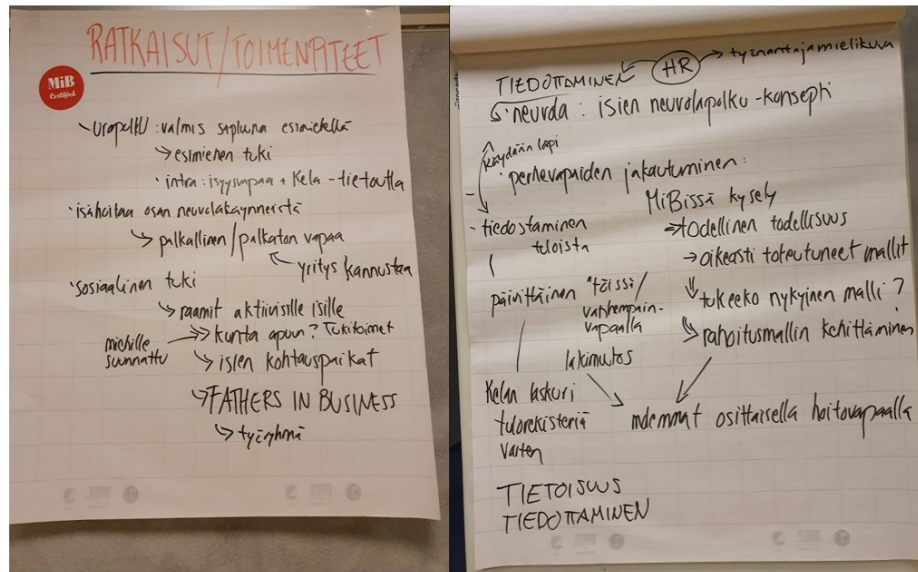 RATKAISUT/TOIMENPITEET
MiB
Certified
- urapolku : valmis sapluuna esimiehellä
→ esimiehen tuki
· intra : isyysvapaa + Kela -tietoutta
· isä hoitaa osan neuvolakäynneistä
→ palkallinen/palkaton vapaa
← yritys kannustaa
· sosiaalinen tuki
→ raamit aktiivisille isille
miehille suunnattu →
→ kunta apuun? Tukitoimet
→ isien kohtauspaikat
→ FATHERS IN BUSINESS
→ työryhmä
HR → työnantajamielikuva
TIEDOTTAMINEN
· neuvola : isien neuvolapolku -konsepti
käydään läpi
· perhevapaiden jakautuminen :
MiBissä kysely
- tiedostaminen
tuloista
→ todellinen todellisuus
→ oikeasti toteutuneet mallit
päivittäinen "töissä/
vanhempain-
vapaalla
→ tukeeko nykyinen malli?
→ rahoitusmallin kehittäminen
lakimuutos
Kelan laskuri
tulorekisteriä
varten
molemmat osittaisella hoitovapaalla
TIETOISUUS
TIEDOTTAMINEN